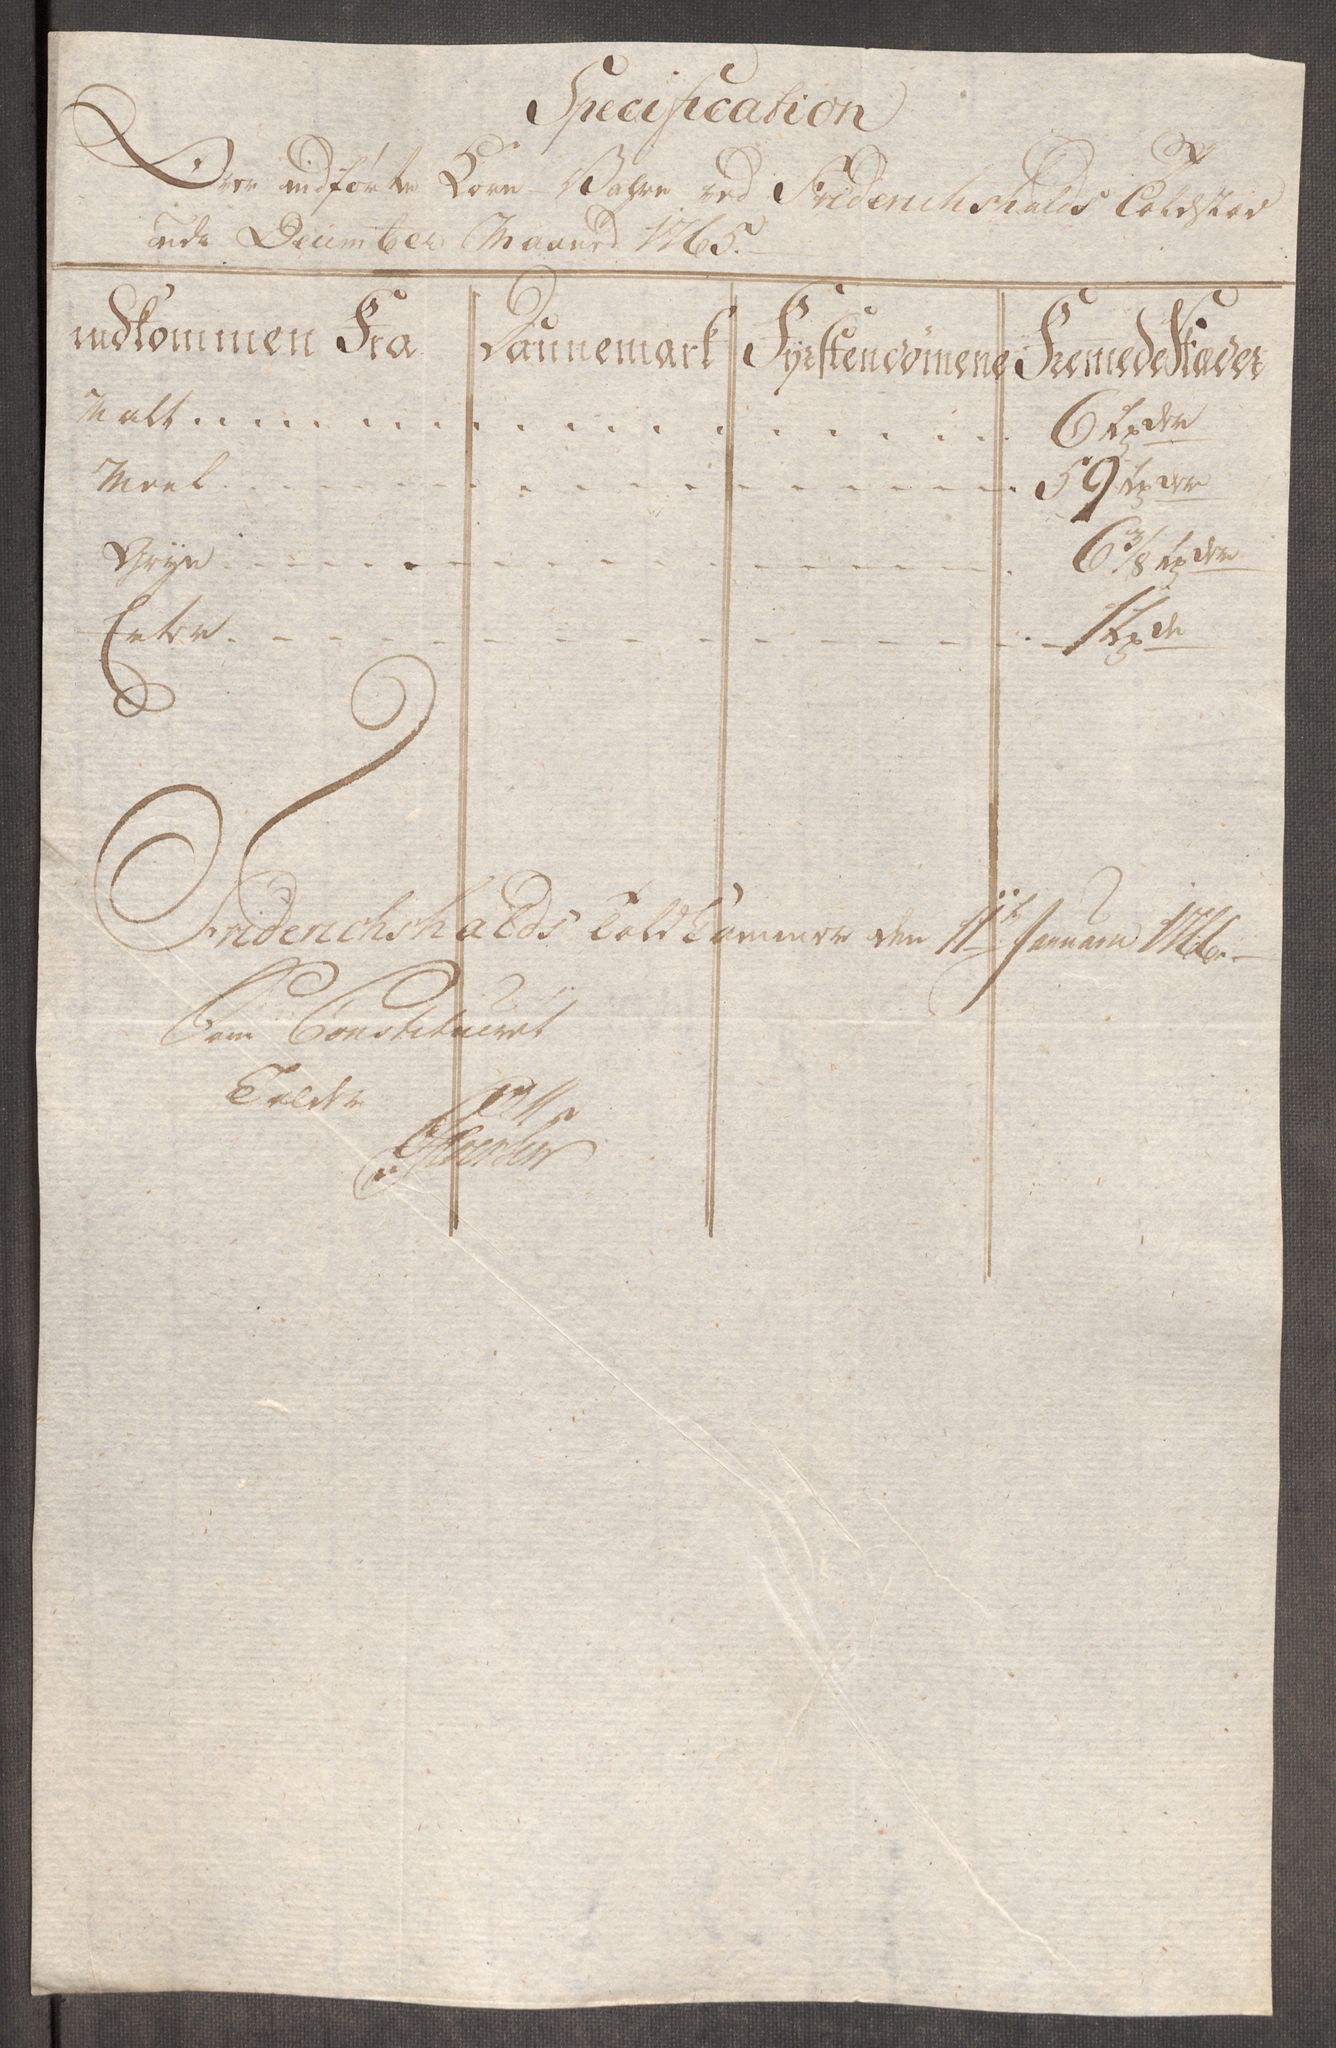 Specification
Over indførte Korn-Vahre ved Friderichshalds Toldsted
udi December Maaned 1765.
indkommen Fra Dannemark Fyrstendømene Fremede Stæder
Malt 6 Tønder
Meel 59 Tønder
Gryn 6 3/8 Tønder
Erter 1 Tønde
Friderichshalds Told Cammer den 11te Januarii 1766.
Som Constitueret
Tolder